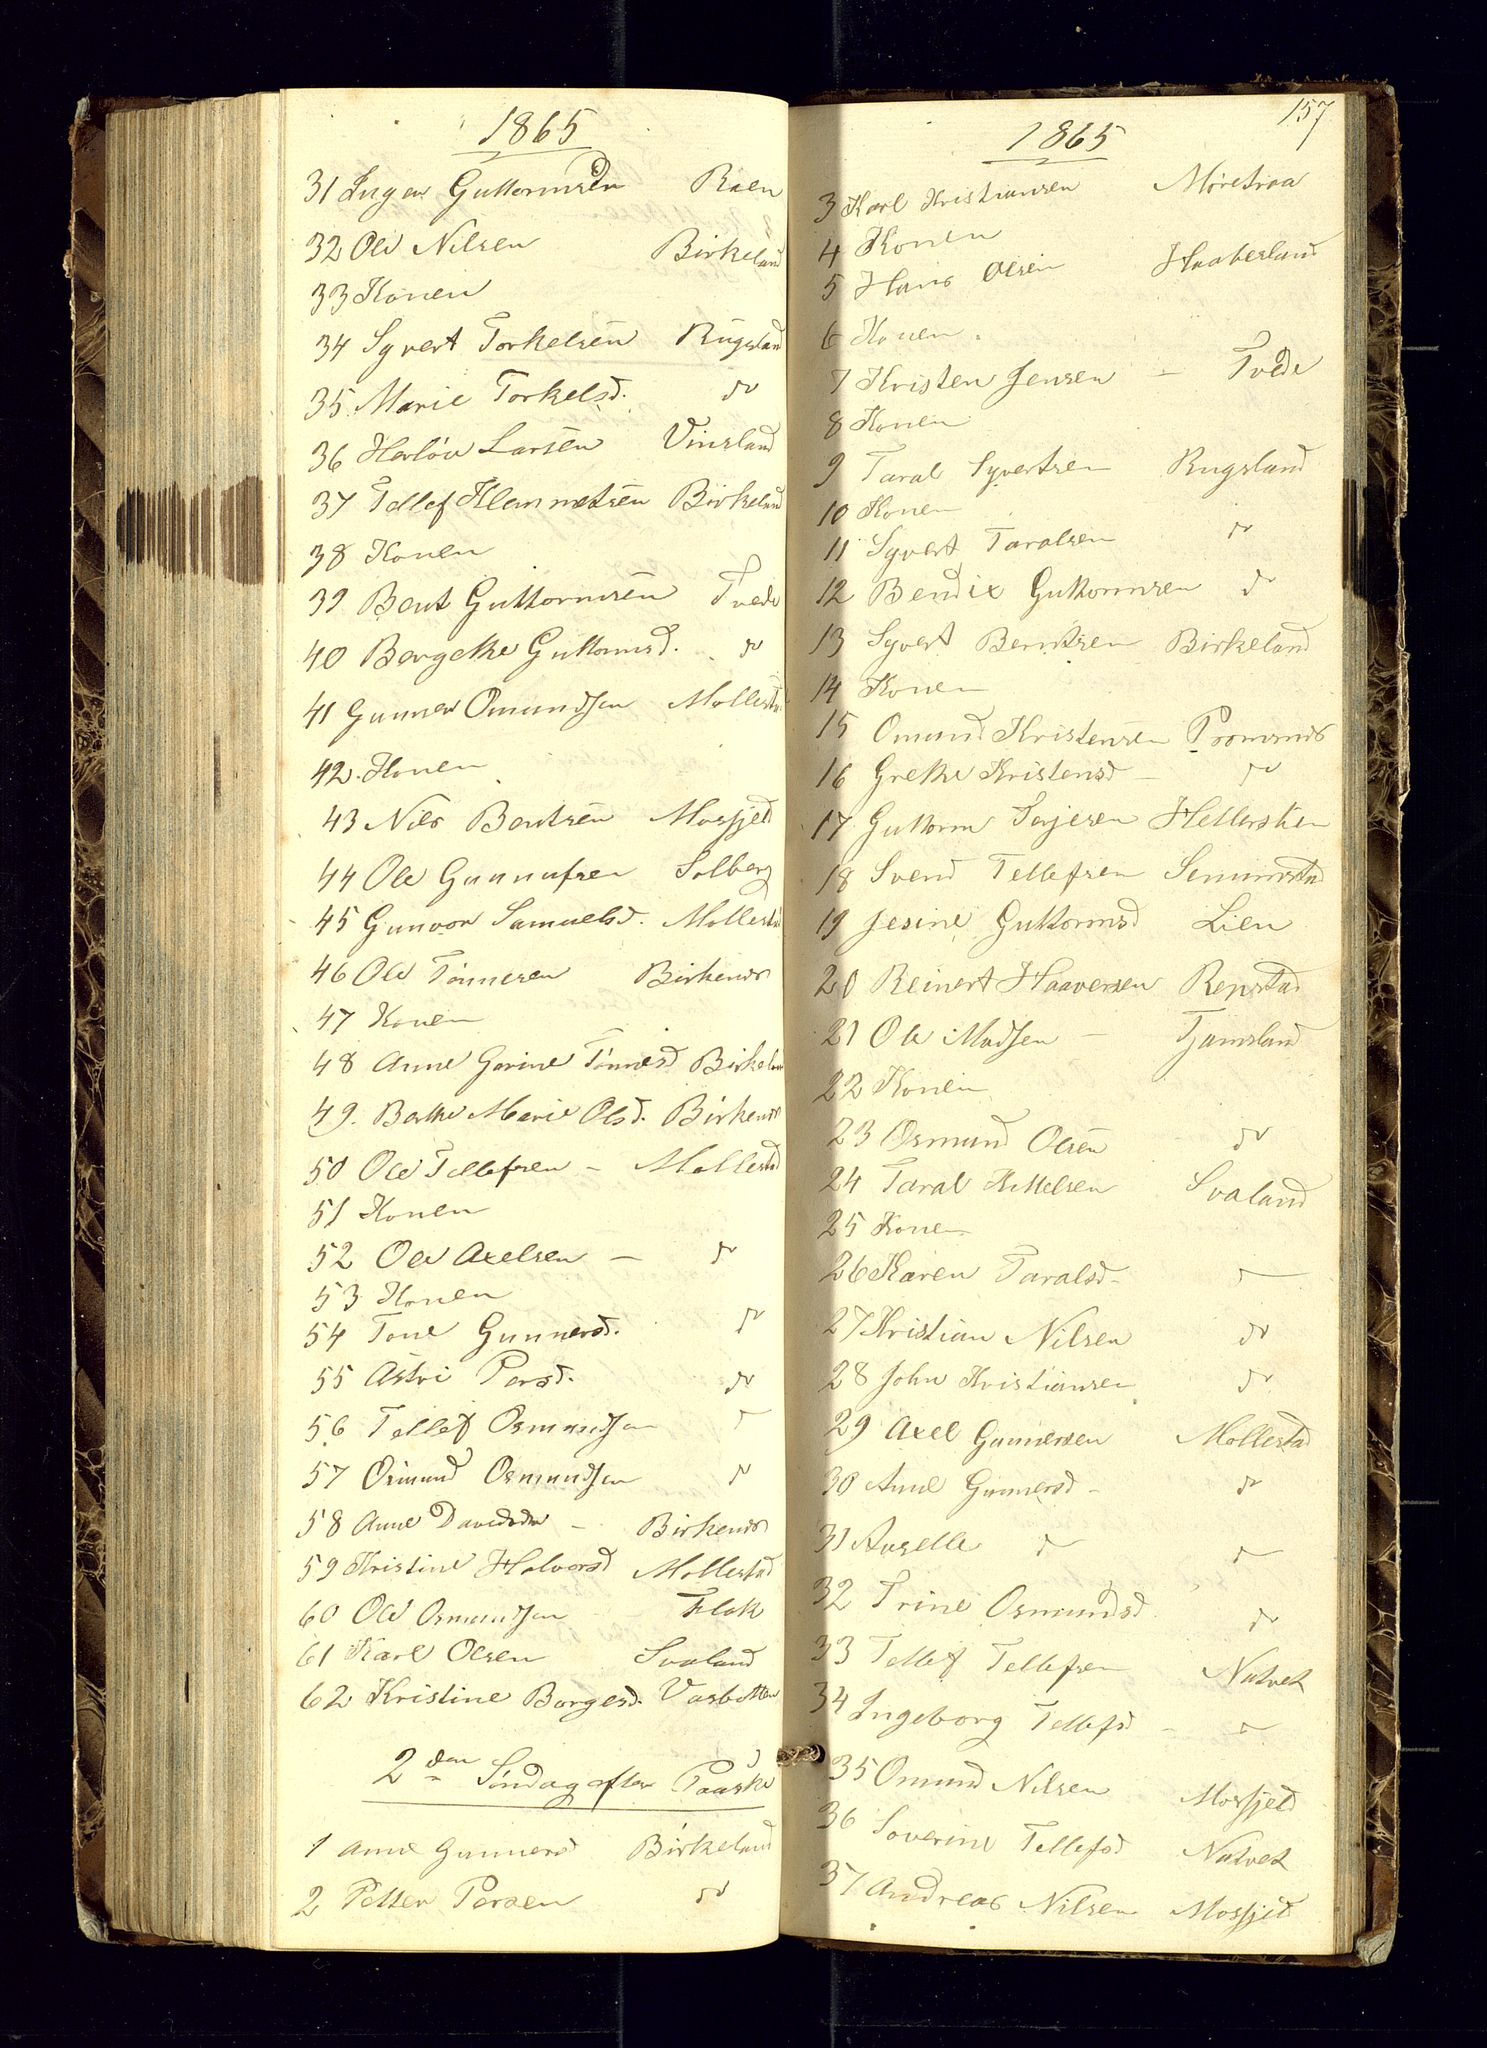 1865
31 Inger Guttormsen Raen
32 Ole Nilsen Birkeland
33 Konen
34 Syvert Torkelsen Rugsland
35 Marie Torkelsd. do
36 Herlöv Larsen Vinsland
37 Tellef Klemmetsen Birkeland
38 Konen
39 Bent Guttormsen Tvede
40 Borgethe Guttormsd. do
41 Gunner Omundsen Mollestad
42. Konen
43 Nils Bentsen Mosfjeld
44 Ole Gunnufsen Solberg
45 Gunvor Samuelsd. Mollestad
46 Ole Tönnesen Birkenes
47 Konen
48 Anne Gorine Tönnesd Birkeland
49. Berthe Marie Olsd. Birkenes
50 Ole Tellefsen – Mollestad
51 Konen
52 Ole Axelsen – do
53 Konen
54 Tone Gunnersd. do
55 Astri Persd. do
56 Tellef Osmundsen do
57 Osmund Osmundsen do
58 Anne Davidsdr – Birkenes
59 Kristine Halvorsd Mollestad
60 Ole Osmundsen – Flak
61 Karl Olsen Svaland
62 Kristine Borgesd. Vasbotten
2den Söndag efter Paaske
1 Anne Gunnersd Birkeland
2 Petter Persen do
157
1865
3 Karl Kristiansen Møretraa
4 Konen
5 Hans Olsen Haabesland
6 Konen
7 Kristen Jensen – Tvede
8 Konen
9 Taral Syvertsen Rugsland
10 Konen
11 Syvert Taralsen do
12 Bendix Guttormsen do
13 Syvert Berntsen Birkeland
14 Konen
15 Omund Kristensen
16 Grethe Kristensd – do
17 Guttorm Terjesen
18 Svend Tellefsen
19 Jesine Guttormsd Lien
20 Reinert Haaversen Repstad
21 Ole Madsen – Tjamsland
22 Konen
23 Osmund Olsen do
24 Taral Kittelsen Svaland
25 Konen
26 Karen Taralsd – do
27 Kristian Nilsen do
28 John Kristiansen do
29 Axel Gunnersen Mollestad
30 Anne Gunnersd – do
31 Aaselle do do
32 Trine Osmundsd do
33 Tellef Tellefsen Natvet
34 Ingeborg Tellefsd – do
35 Omund Nilsen Mosfjeld
36 Soverine Tellefsd Natvet
37 Andreas Nilsen Mosfjeld